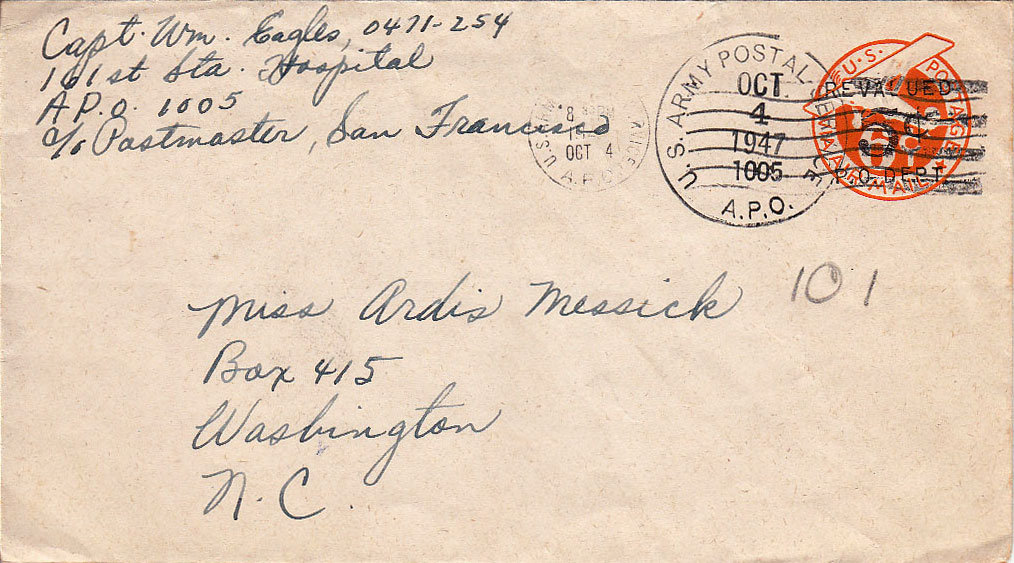 Capt. Wm. Eagles, 0471-254
161st Sta. Hospital
A.P.O. 1005
c/o Postmaster, San Francisco
U.S. ARMY POSTAL SERVICE
OCT
4
1947
1005
A.P.O.
OCT 4
A.P.O.
U.S. POSTAGE
VIA AIR MAIL
6¢
REVALUED
5¢
P.O. DEPT.
101
Miss Ardis Messick
Box 415
Washington
N.C.